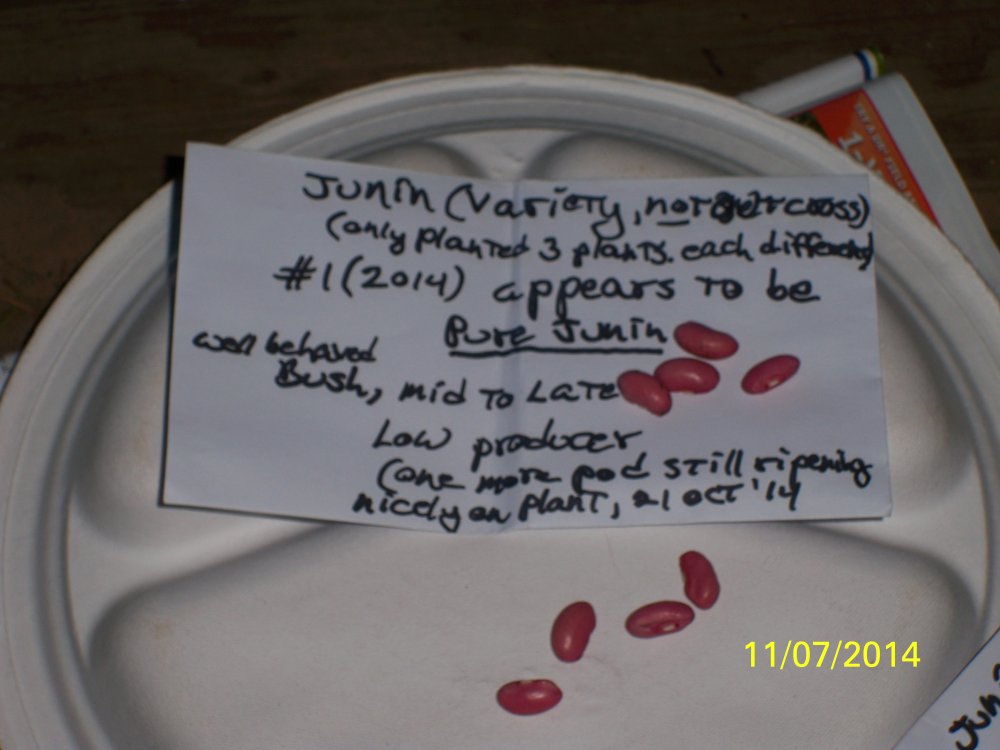 Junin (Variety, not cross)
(only planted 3 plants. each different)
#1 (2014) appears to be
Pure Junin
well behaved
Bush, mid to Late
Low producer
(one more pod still ripening
nicely on plant, 21 OCT '14
11/07/2014
Jun
1-